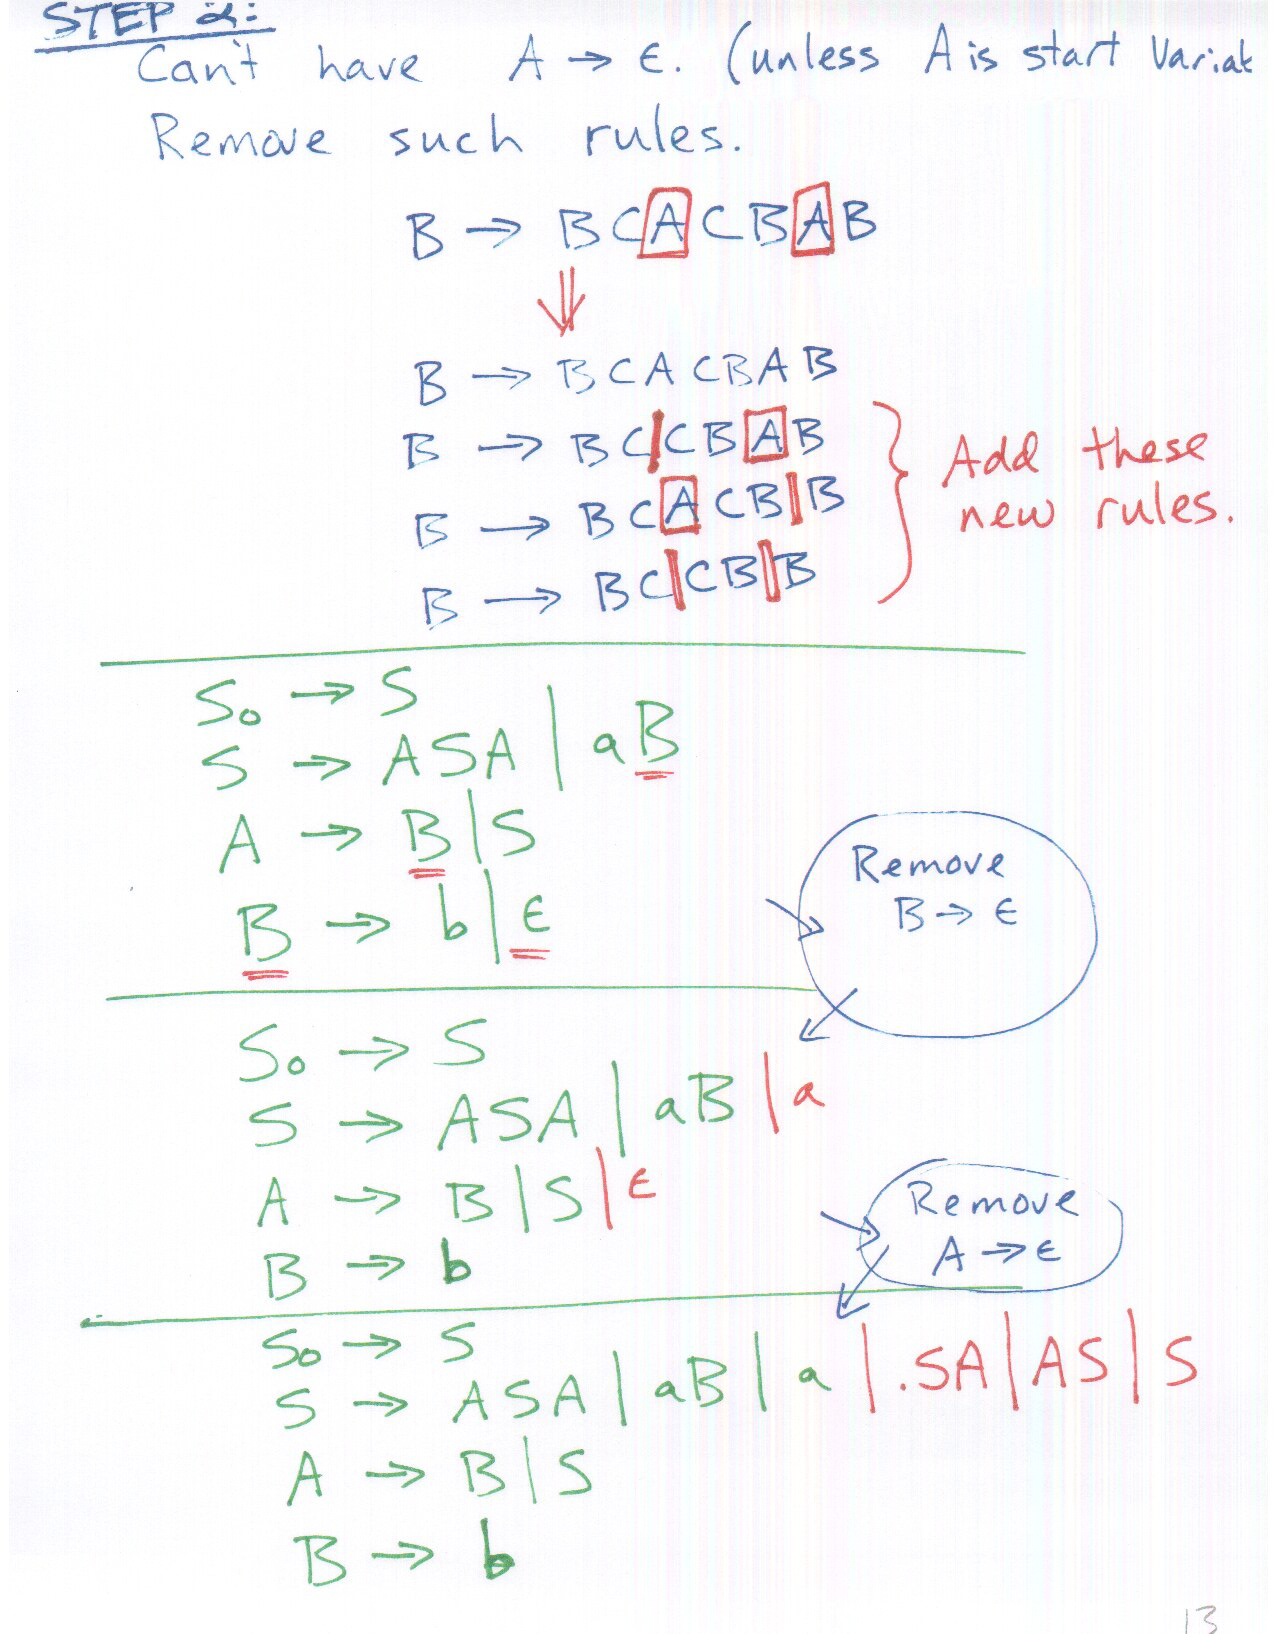 STEP 2:
Can't have A → ε. (unless A is start Variab
Remove such rules.
B → BCACBAB
⇓
B → BCACBAB
B → BC|CBAB
B → BCACB|B
B → BC|CB|B
Add these
new rules.
S₀ → S
S → ASA | aB
A → B | S
B → b | ε
Remove
B → ε
S₀ → S
S → ASA | aB | a
A → B | S | ε
B → b
Remove
A → ε
S₀ → S
S → ASA | aB | a | .SA | AS | S
A → B | S
B → b
13